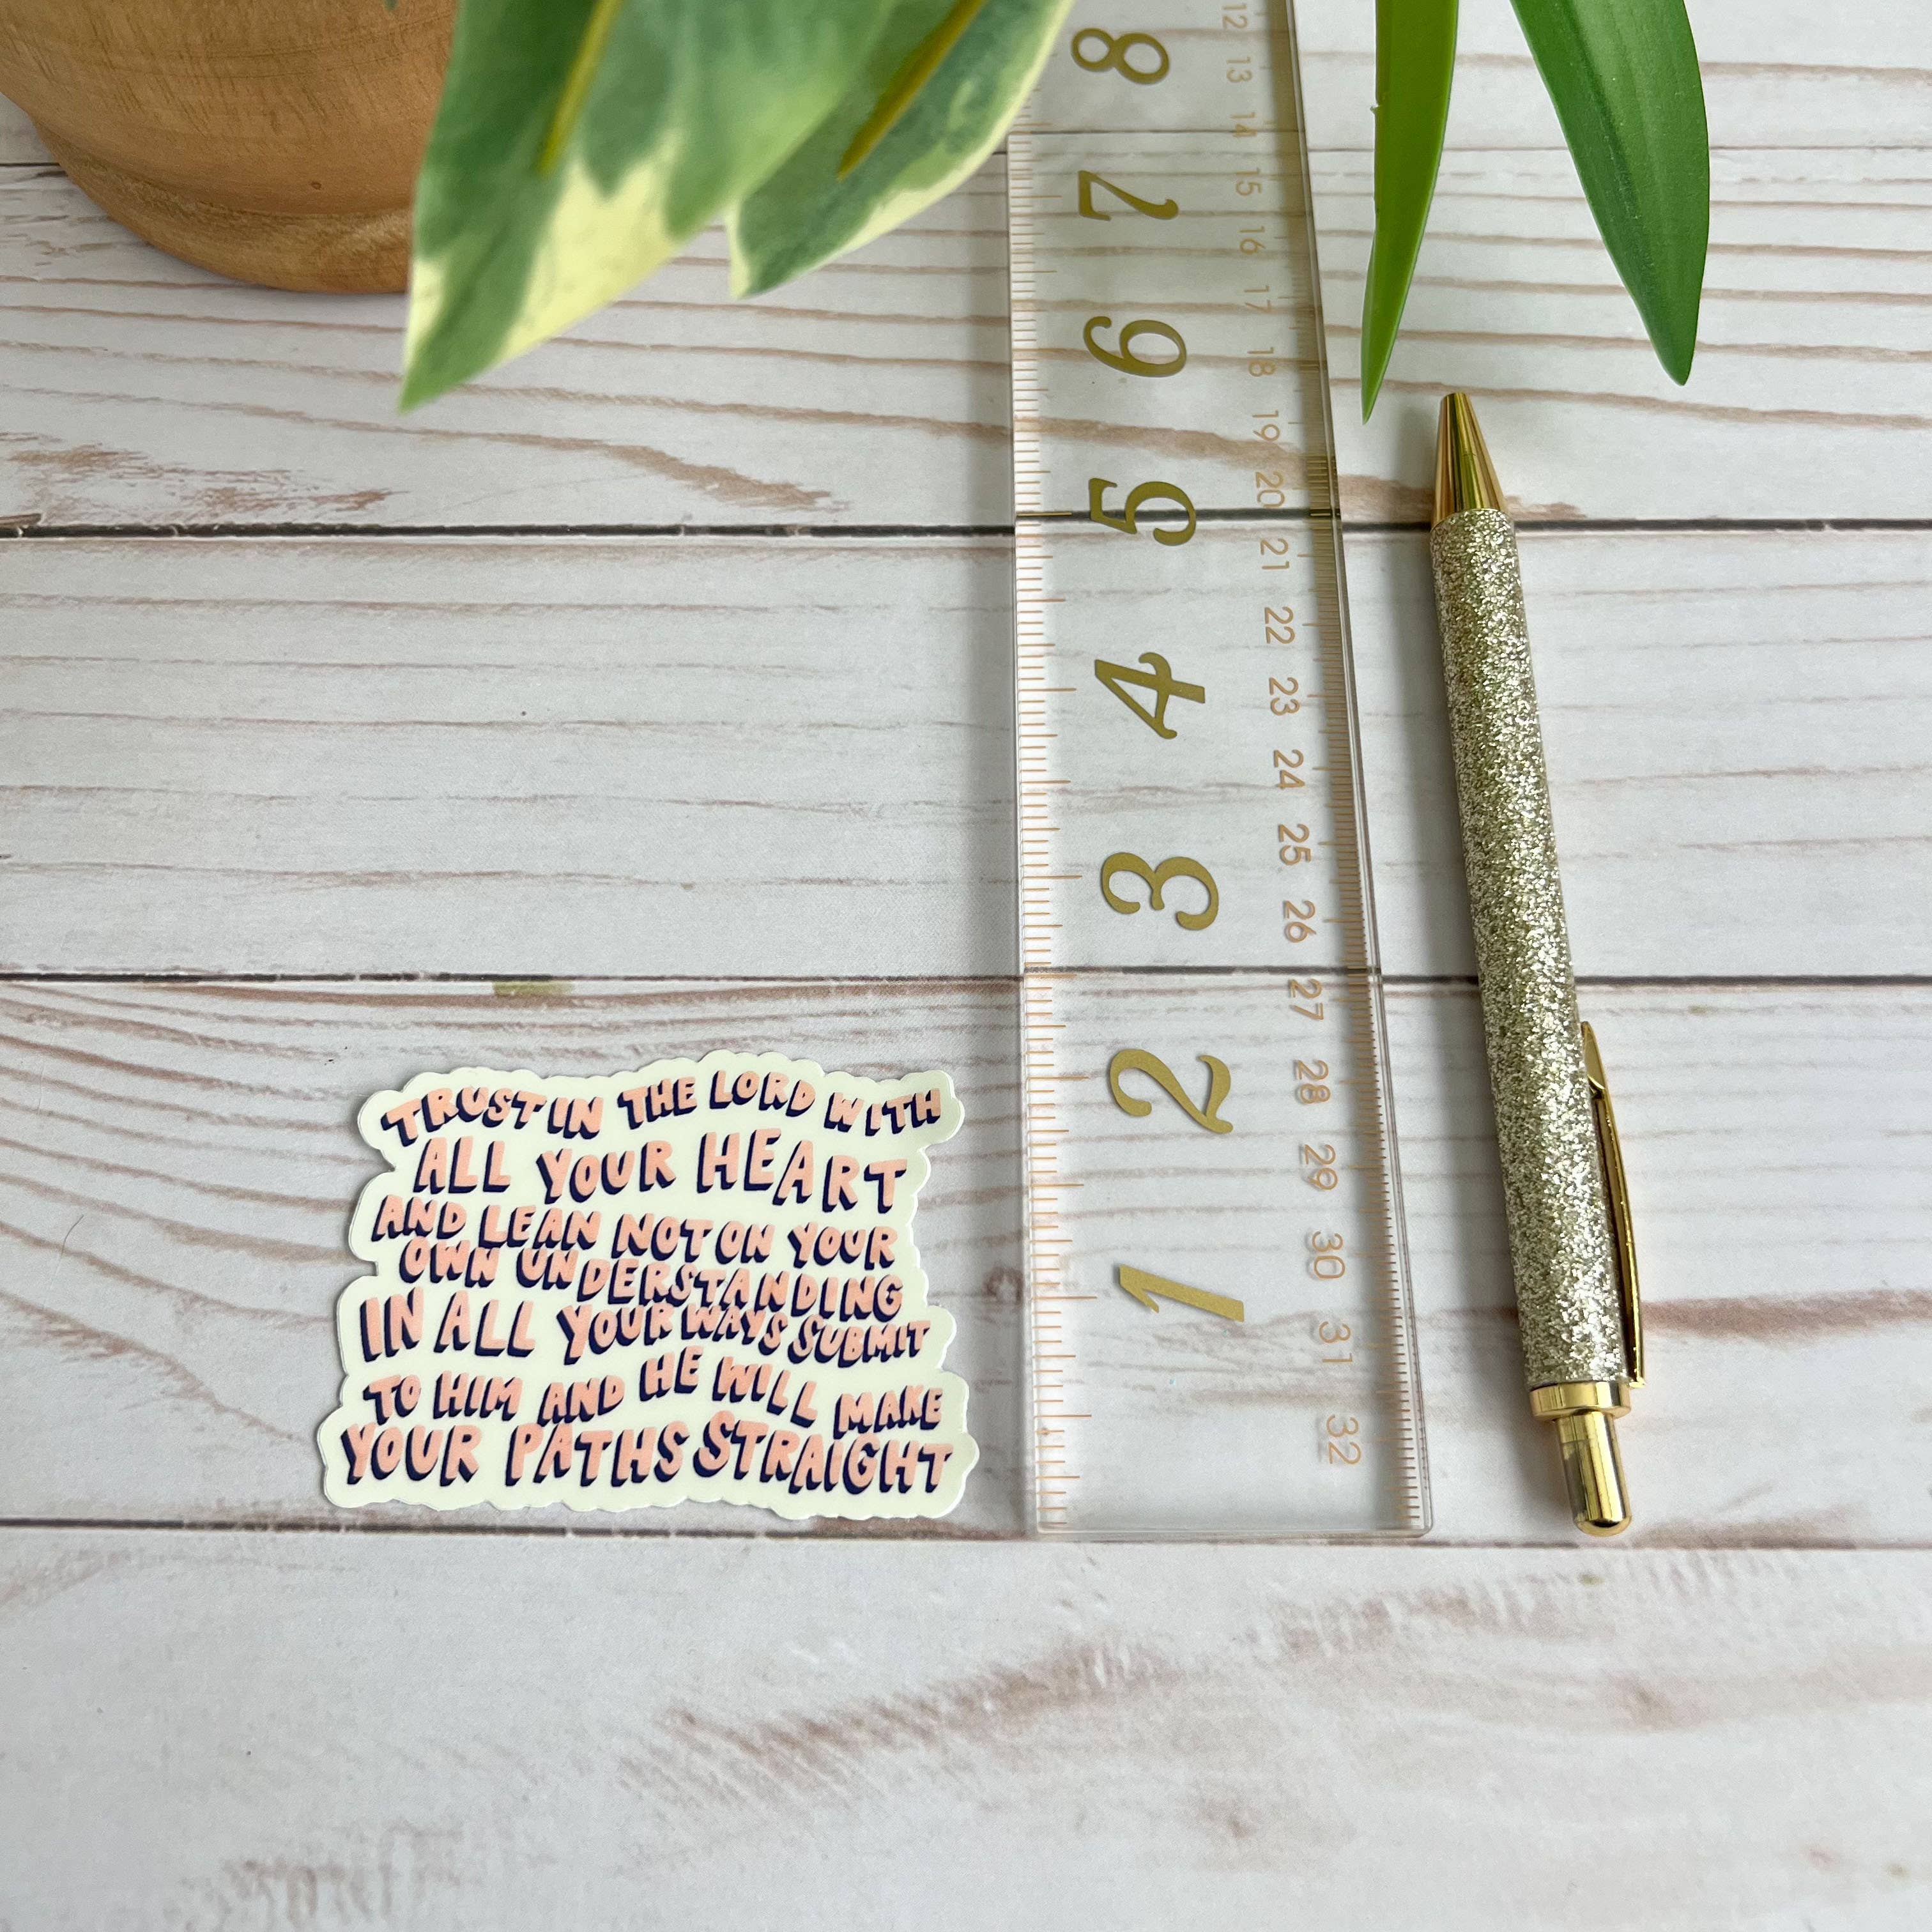 TRUST IN THE LORD WITH
ALL YOUR HEART
AND LEAN NOT ON YOUR
OWN UNDERSTANDING
IN ALL YOUR WAYS SUBMIT
TO HIM AND HE WILL MAKE
YOUR PATHS STRAIGHT
8
7
6
5
4
3
2
1
12
13
14
15
16
17
18
19
20
21
22
23
24
25
26
27
28
29
30
31
32